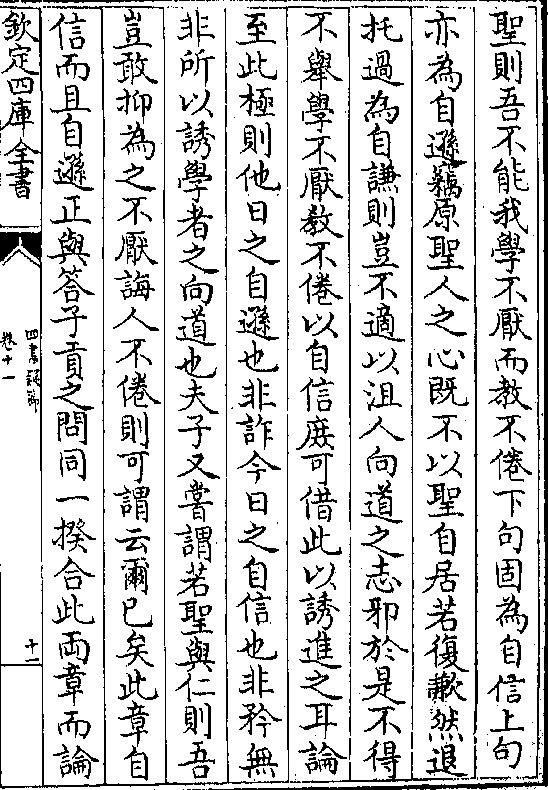 聖則吾不能我學不厭而教不倦下句固為自信上句
亦為自遜竊原聖人之心既不以聖自居若復歉然退
托過為自謙則豈不適以沮人向道之志邪於是不得
不舉學不厭教不倦以自信庶可借此以誘進之耳論
至此極則他日之自遜也非詐今日之自信也非矜無
非所以誘學者之向道也夫子又嘗謂若聖與仁則吾
豈敢抑為之不厭誨人不倦則可謂云爾已矣此章自
信而且自遜正與答子貢之問同一揆合此兩章而論
欽定四庫全書
四書疑節
卷十一
十二